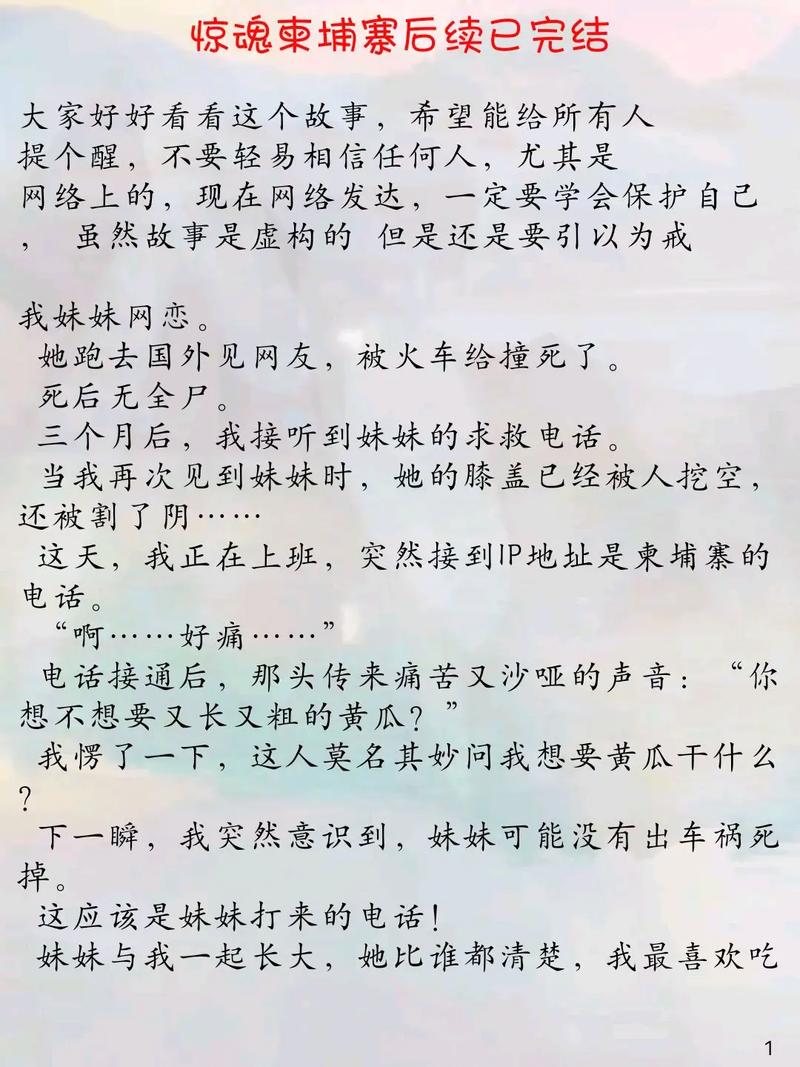 惊魂柬埔寨后续已完结
大家好好看看这个故事，希望能给所有人
提个醒，不要轻易相信任何人，尤其是
网络上的，现在网络发达，一定要学会保护自己
， 虽然故事是虚构的 但是还是要引以为戒
我妹妹网恋。
她跑去国外见网友，被火车给撞死了。
死后无全尸。
三个月后，我接听到妹妹的求救电话。
当我再次见到妹妹时，她的膝盖已经被人挖空，
还被割了阴……
这天，我正在上班，突然接到IP地址是柬埔寨的
电话。
“啊……好痛……”
电话接通后，那头传来痛苦又沙哑的声音：“你
想不想要又长又粗的黄瓜？”
我愣了一下，这人莫名其妙问我想要黄瓜干什么
？
下一瞬，我突然意识到，妹妹可能没有出车祸死
掉。
这应该是妹妹打来的电话！
妹妹与我一起长大，她比谁都清楚，我最喜欢吃
1